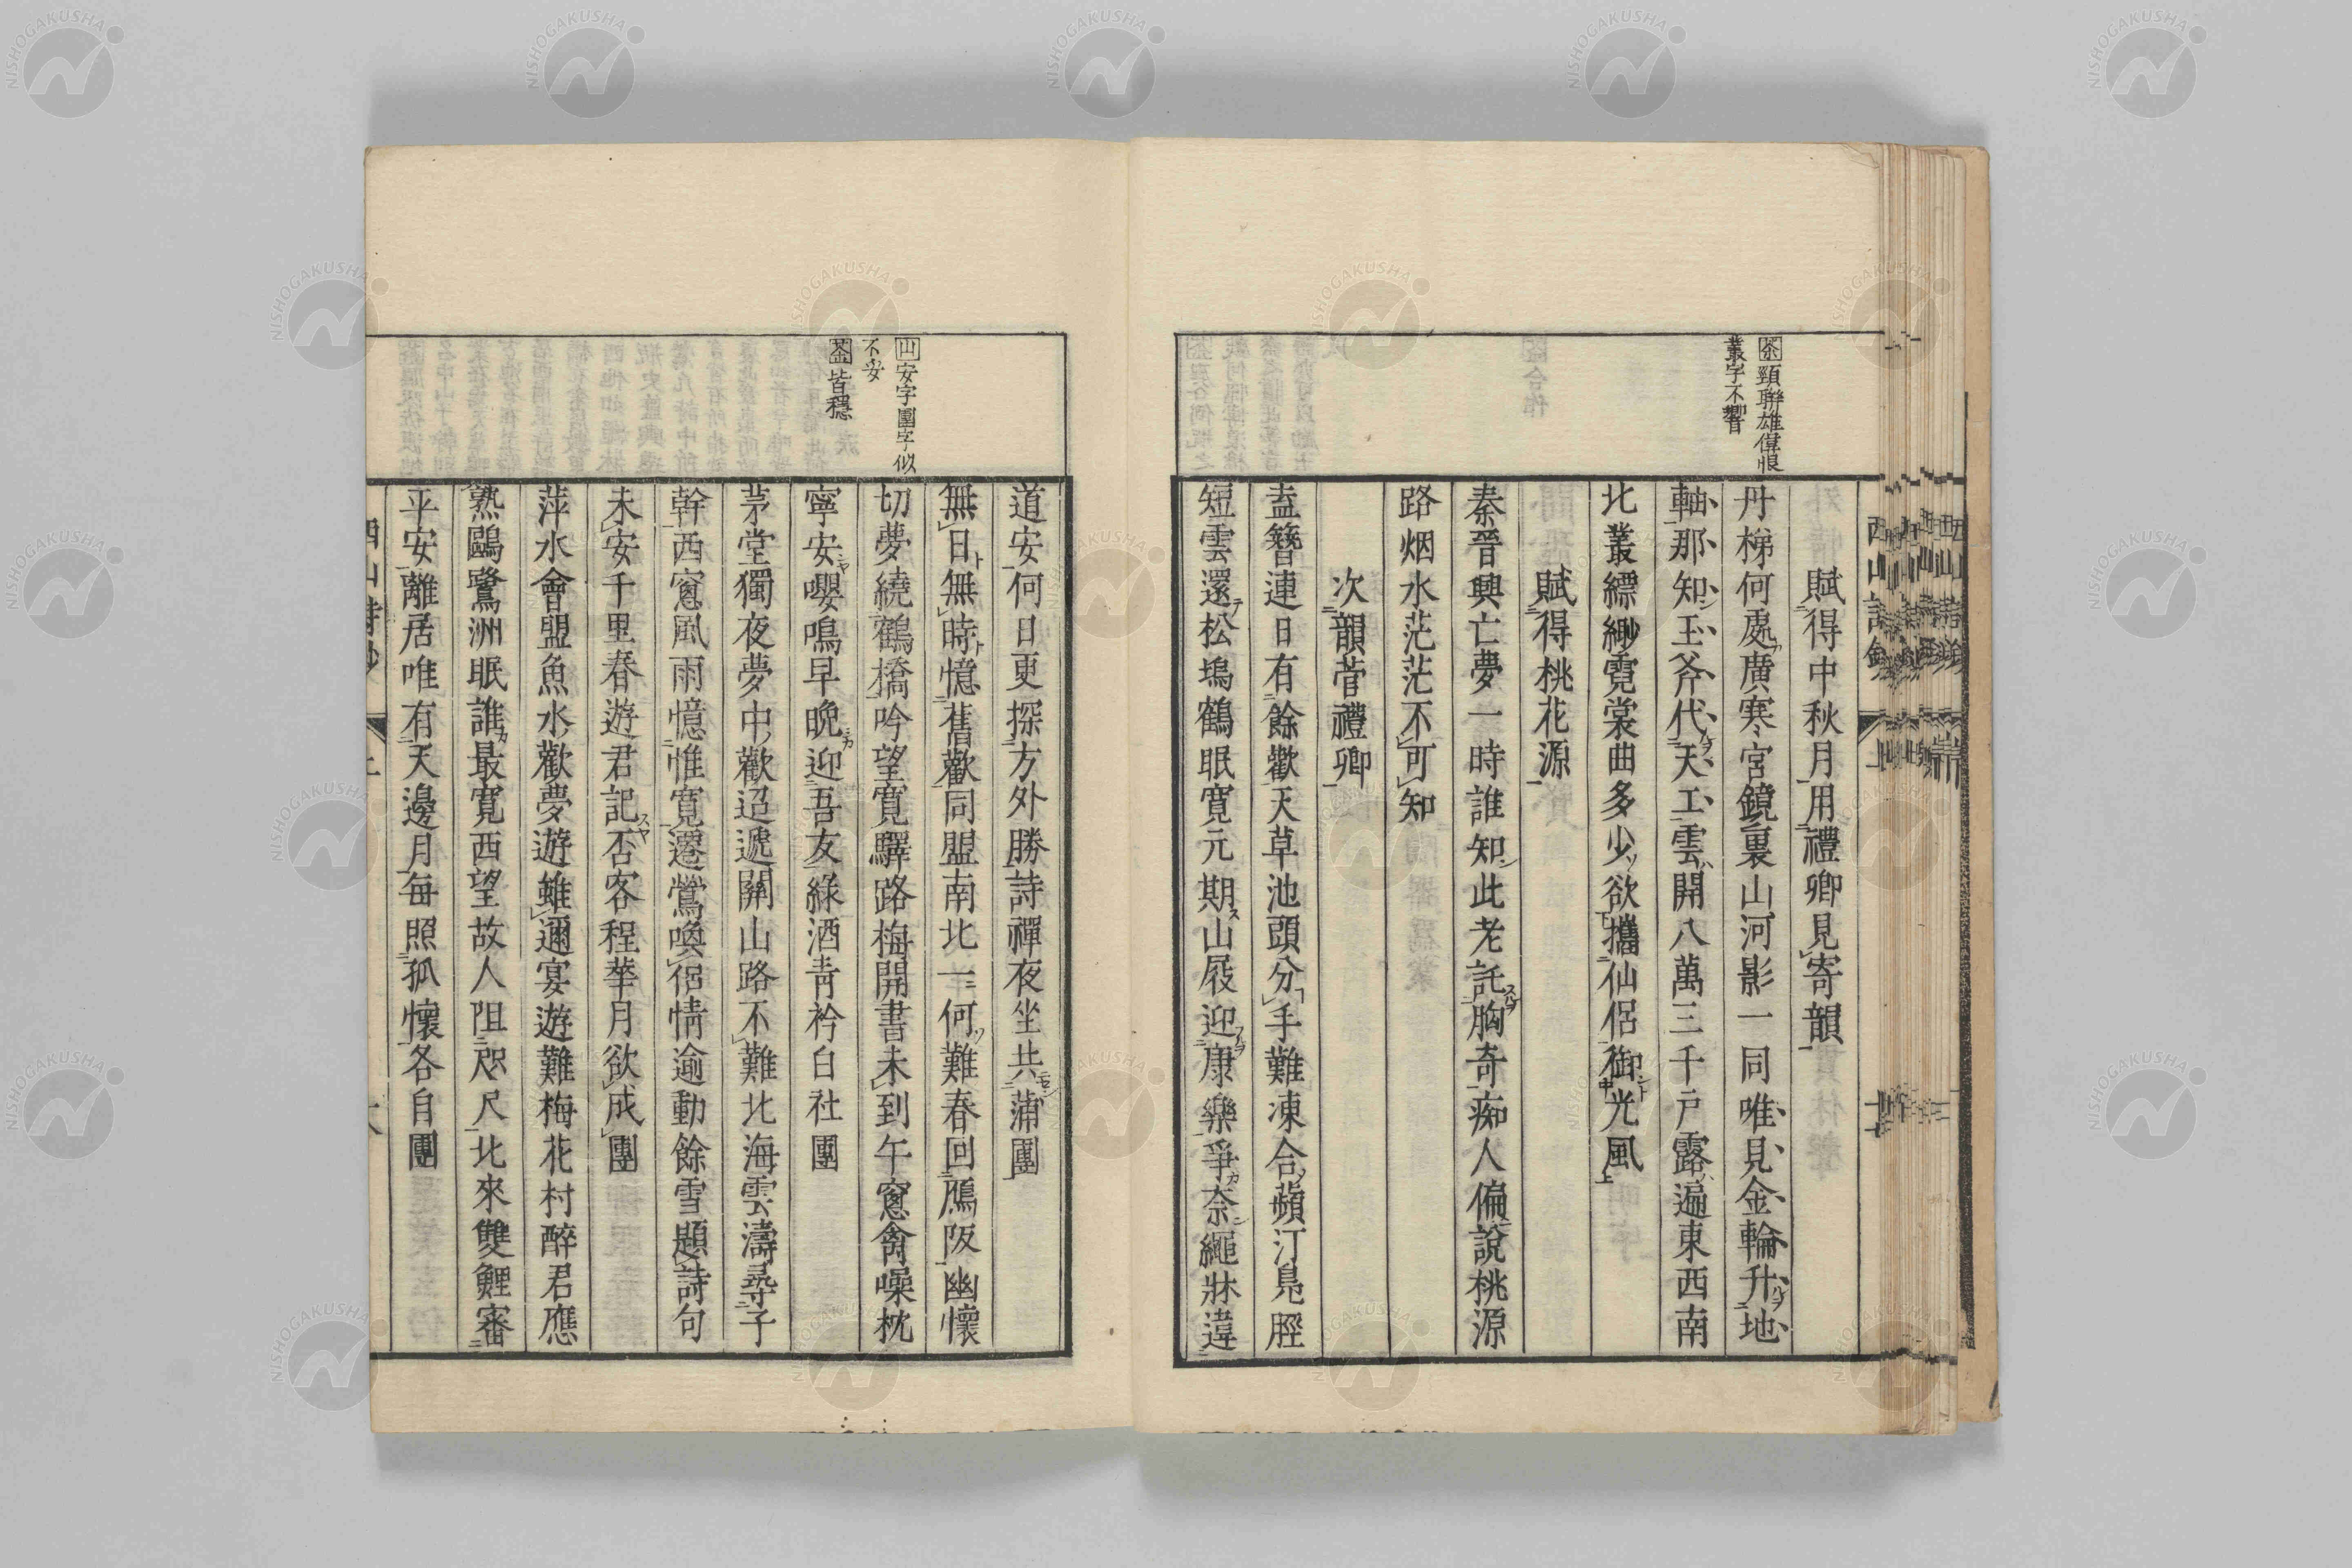 茶頸聯雄偉恨
叢字不響
賦得中秋月用禮卿見寄韻
丹梯何處廣寒宮鏡裏山河影一同唯見金輪升地
軸那知玉斧代天工雲開八萬三千戸露遍東西南
北叢縹緲霓裳曲多少欲攜仙侶御光風
賦得桃花源
秦晉興亡夢一時誰知此老託胸奇痴人偏說桃源
路烟水茫茫不可知
次韻菅禮卿
盍簪連日有餘歡天草池頭分手難凍合蘋汀鳧脛
短雲還松塢鶴眠寛元期山屐迎康樂爭奈繩牀違
山安字團字似
不妥
茶皆穩
道安何日更探方外勝詩禪夜坐共蒲團
無日無時憶舊歡同盟南北一何難春回鴈阪幽懷
切夢繞鶴橋吟望寛驛路梅開書未到午窓禽噪枕
寧安嚶鳴早晚迎吾友綠酒青衿白社團
茅堂獨夜夢中歡迢遞關山路不難北海雲濤尋子
幹西窓風雨憶惟寛遷鶯喚侶情逾動餘雪題詩句
未安千里春遊君記否客程華月欲成團
萍水會盟魚水歡夢遊雖邇宴遊難梅花村醉君應
熟鷗鷺洲眠誰最寛西望故人阻咫尺北來雙鯉審
平安離居唯有天邊月每照孤懷各自團